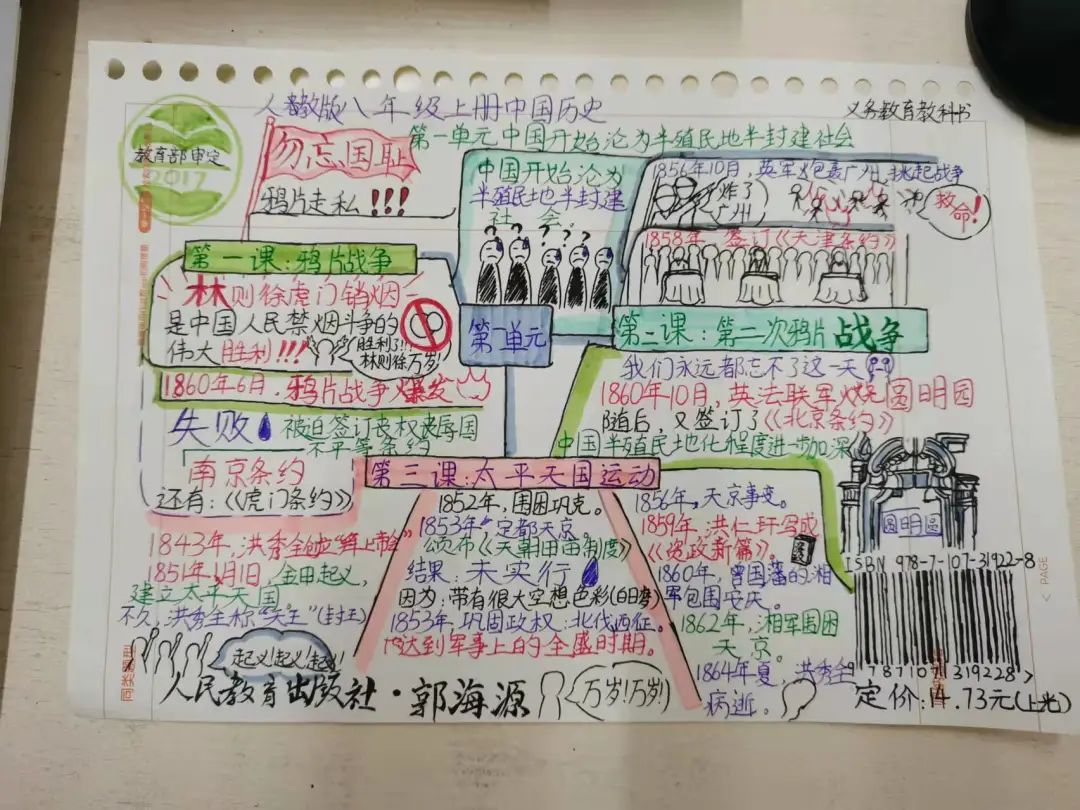 人教版八年级上册中国历史
义务教育教科书
教育部审定
2017
第一单元中国开始沦为半殖民地半封建社会
勿忘国耻
鸦片走私!!!
中国开始沦为
半殖民地半封建
社会
????
1856年10月,英军炮轰广州,挑起战争
炸了
广州
救命!
1858年 签订《天津条约》
第一课:鸦片战争
林则徐虎门销烟
是中国人民禁烟斗争的
伟大胜利!!!
胜利了!!!
林则徐万岁!
第一单元
第二课:第二次鸦片战争
1860年6月,鸦片战争爆发
失败
被迫签订丧权辱国
不平等条约
南京条约
还有:《虎门条约》
我们永远都忘不了这一天
1860年10月,英法联军火烧圆明园
随后,又签订了《北京条约》
中国半殖民地化程度进一步加深
圆明園
第三课:太平天国运动
1843年,洪秀全创立"拜上帝会"
1851年1月1日,金田起义,
建立太平天国
不久,洪秀全称"天王"(封王)
起义!起义!起义!
1852年,围困巩克。
1853年,定都天京。
颁布《天朝田亩制度》
结果:未实行
因为:带有很大空想色彩(白日梦)
1853年,巩固政权,北伐西征。
达到军事上的全盛时期。
万岁!万岁!
1856年,天京事变。
1859年,洪仁玕写成
《资政新篇》。
1860年,曾国藩的湘
军包围安庆。
1862年,湘军围困
天京。
1864年夏,洪秀全
病逝。
人民教育出版社·郭海源
ISBN 978-7-107-31922-8
9 787107 319228>
定价:4.73元(上光)
PAGE